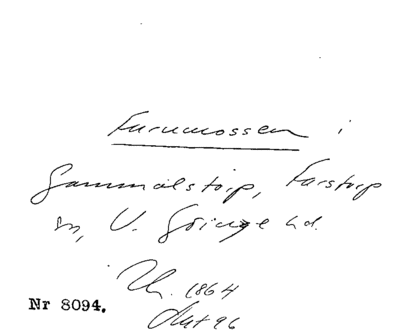 Furumossen i
Gammalstorp, Farstorp
sn, V. Göinge hd.
Uh. 1864
Nr 8094.
Akt 96